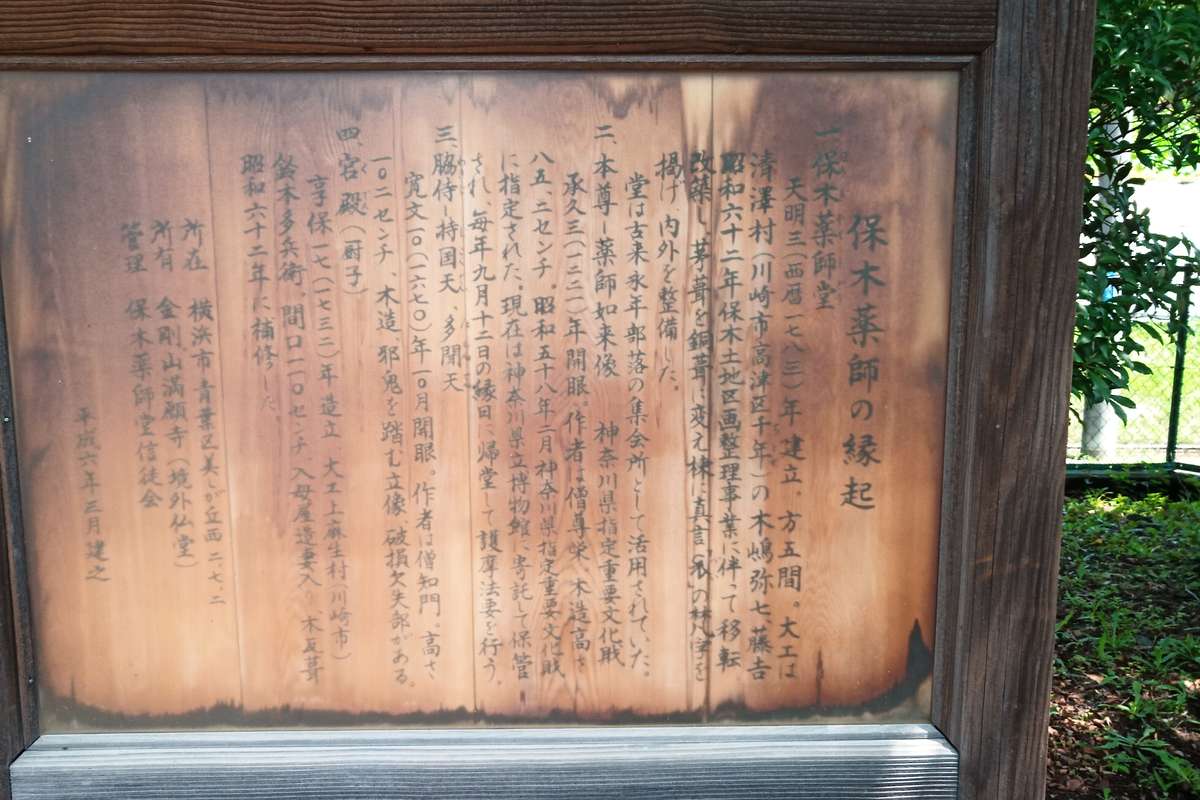 保木薬師の縁起
一、保木薬師堂
天明三(西暦一七八三)年建立。方五間。大工は
清澤村(川崎市高津区千年)の木嶋弥七、藤吉
昭和六十二年保木土地区画整理事業に伴って移転
改築し、茅葺を銅葺に変え棟に真言「　」の梵字を
掲げ、内外を整備した。
堂は古来永年部落の集会所として活用されていた。
二、本尊ー薬師如来像　神奈川県指定重要文化財
承久三(一二二一)年開眼。作者は僧尊栄、木造高さ
八五、二センチ。昭和五十八年二月神奈川県指定重要文化財
に指定された。現在は神奈川県立博物館に寄託して保管
され、毎年九月十二日の縁日に帰堂して護摩法要を行う。
三、脇侍ー持国天、多聞天
寛文一〇(一六七〇)年一〇月開眼。作者は僧知門。高さ
一〇二センチ、木造、邪鬼を踏む立像、破損欠失部がある。
四、宮殿(厨子)
享保一七(一七三二)年造立、大工上麻生村(川崎市)
鈴木多兵衛、間口一一〇センチ、入母屋造妻入り、木瓦葺
昭和六十二年に補修した。
所在　横浜市青葉区美しが丘西二、七、二
所有　金剛山満願寺(境外仏堂)
管理　保木薬師堂信徒会
平成六年三月建之